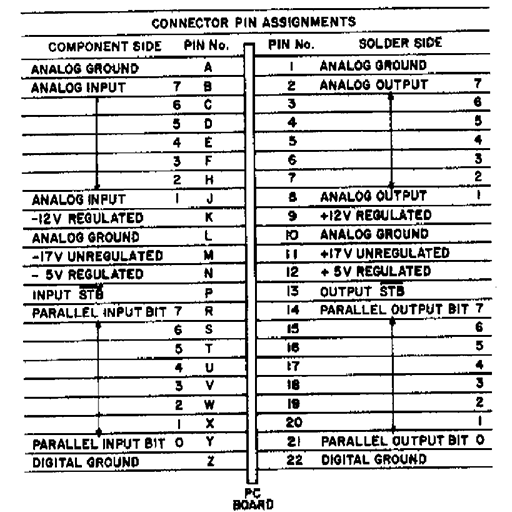 CONNECTOR PIN ASSIGNMENTS
COMPONENT SIDE PIN No. PIN No. SOLDER SIDE
ANALOG GROUND A 1 ANALOG GROUND
ANALOG INPUT 7 B 2 ANALOG OUTPUT 7
6 C 3 6
5 D 4 5
4 E 5 4
3 F 6 3
2 H 7 2
ANALOG INPUT 1 J 8 ANALOG OUTPUT 1
-12V REGULATED K 9 +12V REGULATED
ANALOG GROUND L 10 ANALOG GROUND
-17V UNREGULATED M 11 +17V UNREGULATED
- 5V REGULATED N 12 + 5V REGULATED
INPUT STB P 13 OUTPUT STB
PARALLEL INPUT BIT 7 R 14 PARALLEL OUTPUT BIT 7
6 S 15 6
5 T 16 5
4 U 17 4
3 V 18 3
2 W 19 2
1 X 20 1
PARALLEL INPUT BIT 0 Y 21 PARALLEL OUTPUT BIT 0
DIGITAL GROUND Z 22 DIGITAL GROUND
PC
BOARD